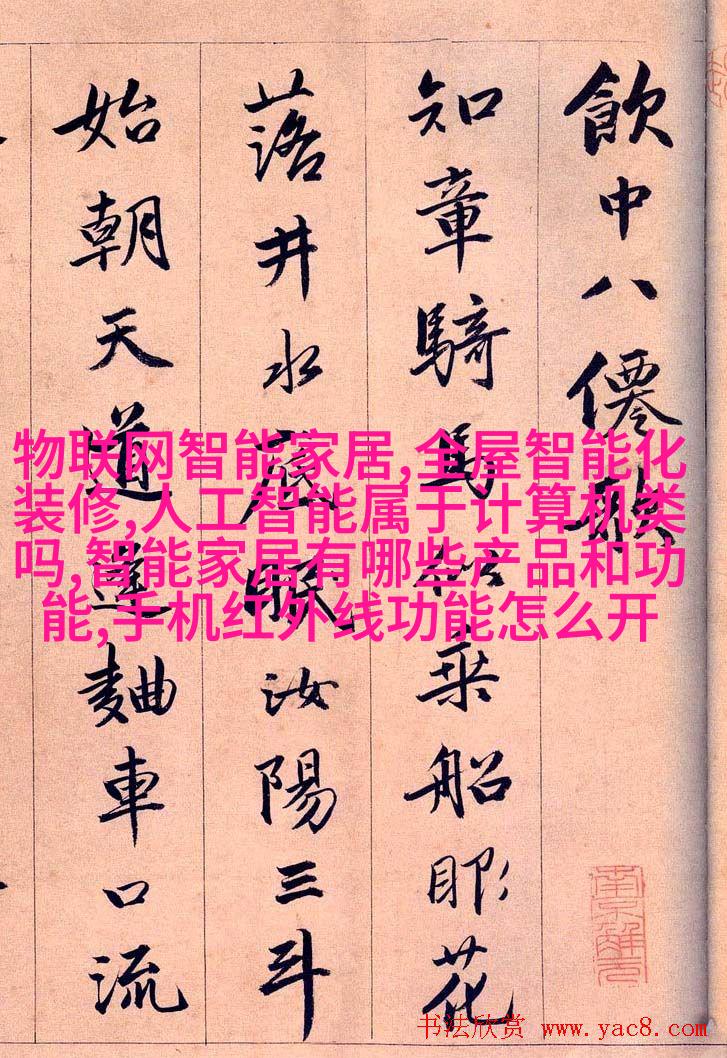 飲中八僊歌
知章騎馬似乘船眼花
落井水底眠汝陽三斗
始朝天道逢麯車口流
物联网智能家居,全屋智能化
装修,人工智能属于计算机类
吗,智能家居有哪些产品和功
能,手机红外线功能怎么开
南京解元
书法欣赏 www.yac8.com